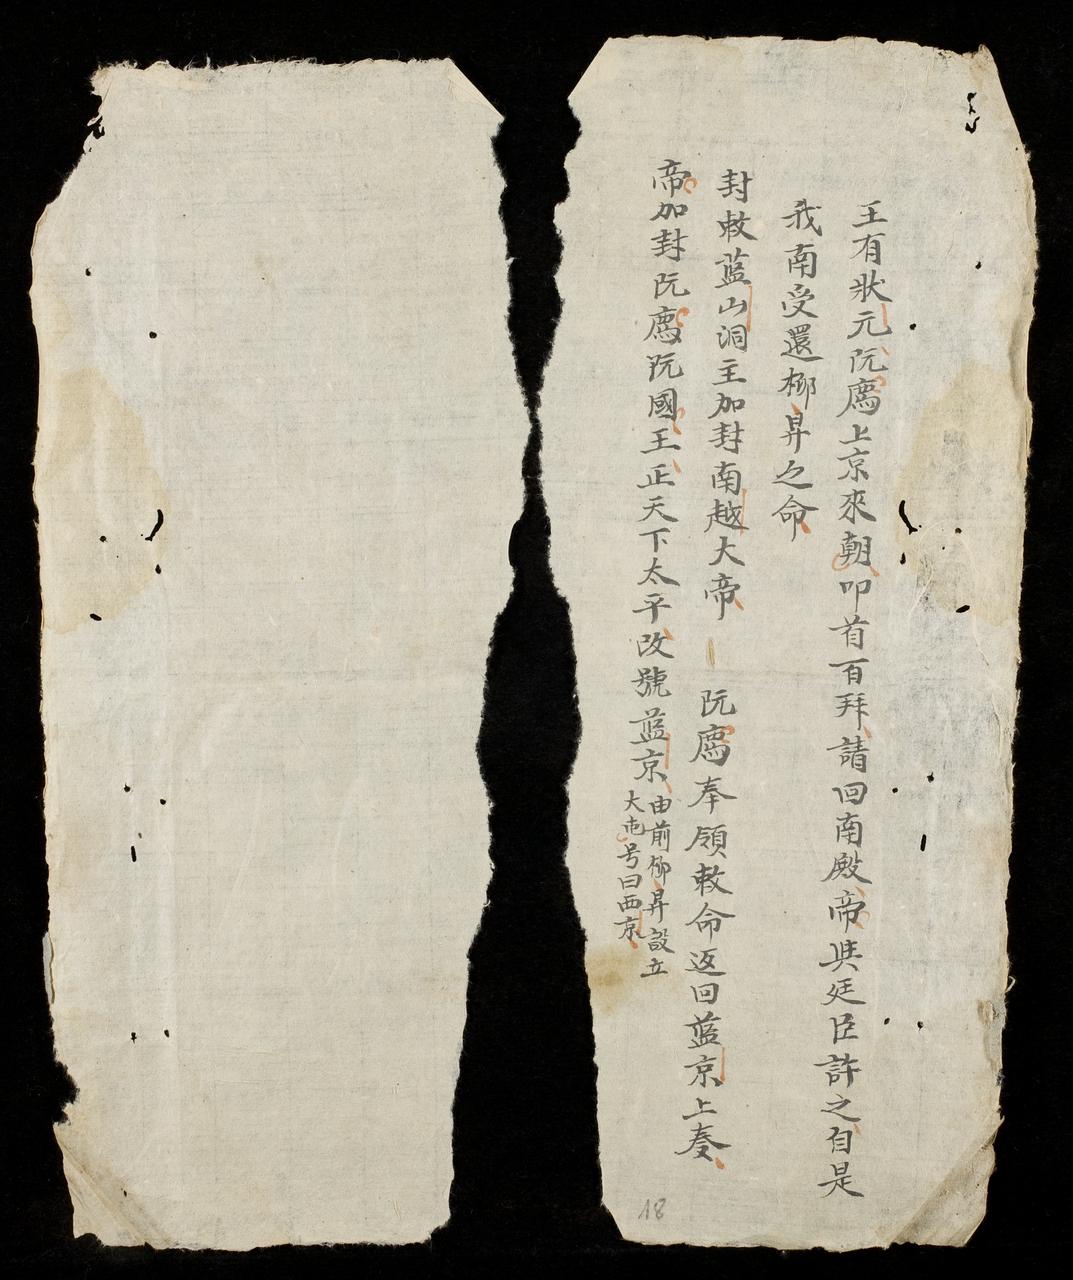 王有狀元阮廌上京來朝叩首百拜請回南殿帝與廷臣許之自是
我南受還柳昇之命
封敕蓝山洞主加封南越大帝 阮廌奉領敕命返回蓝京上奏
帝加封阮廌阮國王正天下太平改號蓝京
由前柳昇設立
大屯号曰西京
18